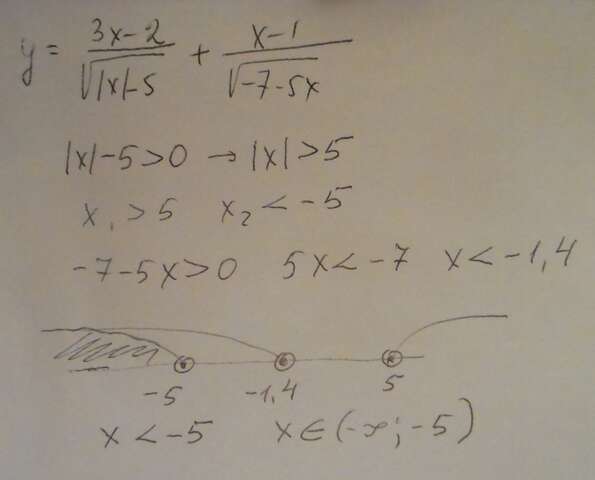 y = (3x-2)/√(|x|-5) + (x-1)/√(-7-5x)
|x|-5>0 → |x|>5
x₁ >5 x₂ < -5
-7-5x>0 5x<-7 x<-1,4
-5 -1,4 5
x < -5 x∈(-∞; -5)